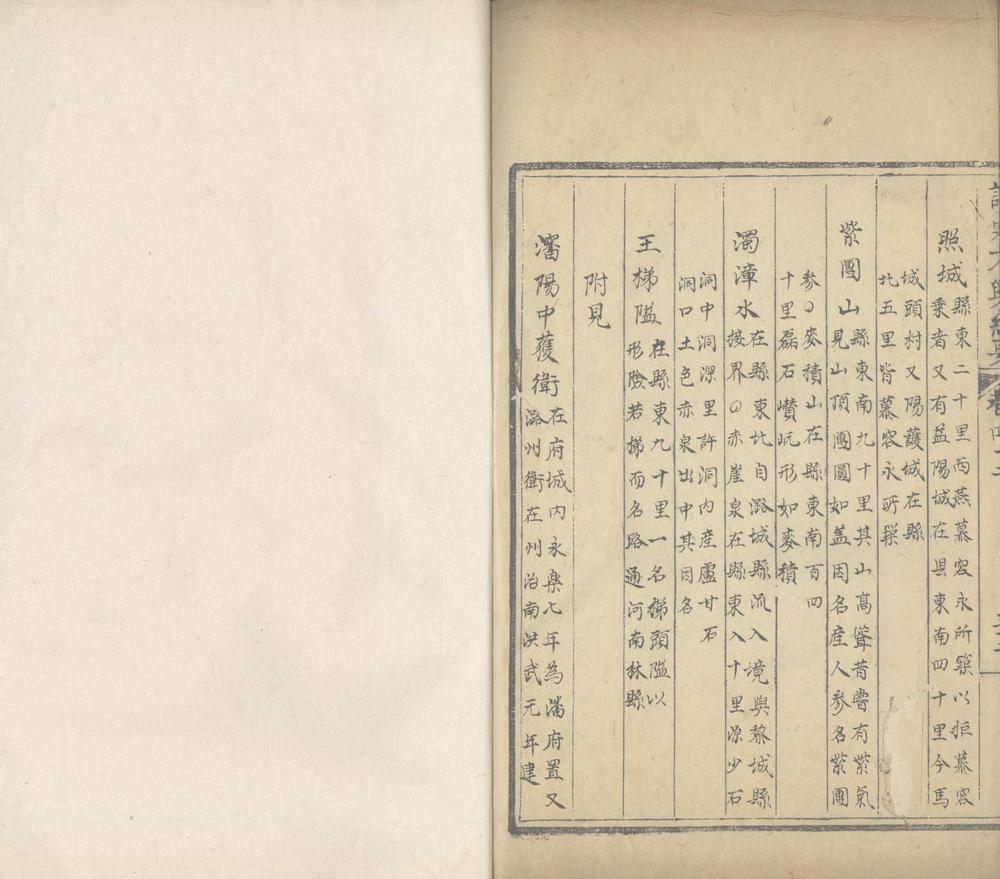 照城縣東二十里西燕慕容永所築以拒慕容
乗者又有益陽城在縣東南四十里今馬
城頭村又陽護城在縣
北五里皆慕容永所築
紫團山縣東南九十里其山高聳昔嘗有紫氣
見山頂團圓如盖因名産人参名紫團
参○麥積山在縣東南百四
十里磊石巑岏形如麥積
濁漳水在縣東北自潞城縣流入境與黎城縣
接界○赤崖泉在縣東入十里源少石
洞中洞深里許洞内産盧甘石
洞口土色赤泉出中其因名
王梯隘在縣東九十里一名梯頭隘以
形險若梯而名路通河南林縣
附見
瀋陽中護衛在府城内永樂七年為瀋府置又
潞州衛在州治南洪武元年建